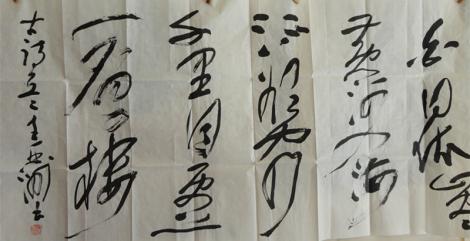 白日依山尽
黄河入海
流欲穷
千里目更上
一层楼
古诗